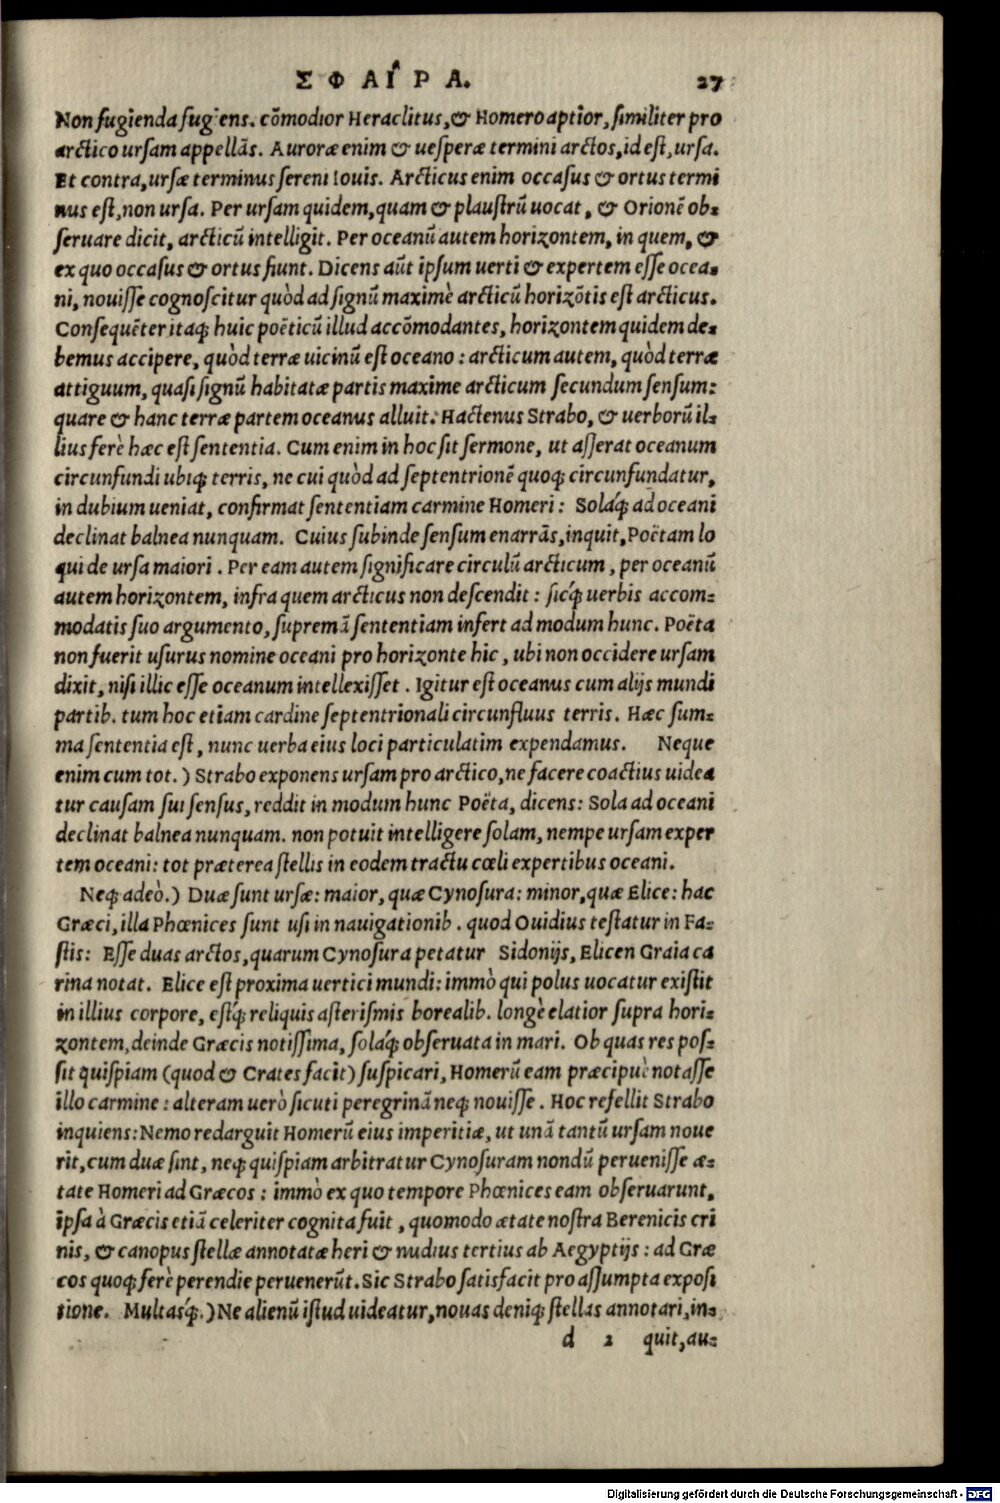 ΣΦΑΙ͂ΡΑ. 27
Non fugienda fugiens. cõmodior Heraclitus, & Homero aptior, ſimiliter pro
arctico urſam appellãs. Auroræ enim & ueſperæ termini arctos, id eſt, urſa.
Et contra, urſæ terminus ſereni Iouis. Arcticus enim occaſus & ortus termi
nus eſt, non urſa. Per urſam quidem, quam & plauſtrũ uocat, & Orionẽ ob⸗
ſeruare dicit, arcticũ intelligit. Per oceanũ autem horizontem, in quem, &
ex quo occaſus & ortus fiunt. Dicens aũt ipſum uerti & expertem eſſe ocea⸗
ni, nouiſſe cognoſcitur quòd ad ſignũ maximè arcticũ horizõtis eſt arcticus.
Conſequẽter itaq; huic poëticũ illud accõmodantes, horizontem quidem de⸗
bemus accipere, quòd terræ uicinũ eſt oceano: arcticum autem, quòd terræ
attiguum, quaſi ſignũ habitatæ partis maxime arcticum ſecundum ſenſum:
quare & hanc terræ partem oceanus alluit. Hactenus Strabo, & uerborũ il⸗
lius ferè hæc eſt ſententia. Cum enim in hoc ſit ſermone, ut aſſerat oceanum
circunfundi ubiq; terris, ne cui quòd ad ſeptentrionẽ quoq; circunfundatur,
in dubium ueniat, confirmat ſententiam carmine Homeri: Soláq; ad oceani
declinat balnea nunquam. Cuius ſubinde ſenſum enarrãs, inquit, Poëtam lo
qui de urſa maiori. Per eam autem ſignificare circulũ arcticum, per oceanũ
autem horizontem, infra quem arcticus non deſcendit: ſicq́; uerbis accom⸗
modatis ſuo argumento, ſupremã ſententiam infert ad modum hunc. Poëta
non fuerit uſurus nomine oceani pro horizonte hic, ubi non occidere urſam
dixit, niſi illic eſſe oceanum intellexiſſet. Igitur eſt oceanus cum alijs mundi
partib. tum hoc etiam cardine ſeptentrionali circunfluus terris. Hæc ſum⸗
ma ſententia eſt, nunc uerba eius loci particulatim expendamus. Neque
enim cum tot.) Strabo exponens urſam pro arctico, ne facere coactius uidea
tur cauſam ſui ſenſus, reddit in modum hunc Poëta, dicens: Sola ad oceani
declinat balnea nunquam. non potuit intelligere ſolam, nempe urſam exper
tem oceani: tot præterea ſtellis in eodem tractu cœli expertibus oceani.
Neq; adeò.) Duæ ſunt urſæ: maior, quæ Cynoſura: minor, quæ Elice: hac
Græci, illa Phœnices ſunt uſi in nauigationib. quod Ouidius teſtatur in Fa⸗
ſtis: Eſſe duas arctos, quarum Cynoſura petatur Sidonijs, Elicen Graia ca
rina notat. Elice eſt proxima uertici mundi: immò qui polus uocatur exiſtit
in illius corpore, eſtq́; reliquis aſteriſmis borealib. longè elatior ſupra hori⸗
zontem, deinde Græcis notiſſima, ſoláq; obſeruata in mari. Ob quas res poſ⸗
ſit quiſpiam (quod & Crates facit) ſuſpicari, Homerũ eam præcipuè notaſſe
illo carmine: alteram uerò ſicuti peregrinã neq; nouiſſe. Hoc refellit Strabo
inquiens: Nemo redarguit Homerũ eius imperitiæ, ut unã tantũ urſam noue
rit, cum duæ ſint, neq; quiſpiam arbitratur Cynoſuram nondũ perueniſſe æ⸗
tate Homeri ad Græcos: immò ex quo tempore Phœnices eam obſeruarunt,
ipſa à Græcis etiã celeriter cognita fuit, quomodo ætate noſtra Berenicis cri
nis, & canopus ſtellæ annotatæ heri & nudius tertius ab Aegyptijs: ad Græ
cos quoq; ferè perendie peruenerũt. Sic Strabo ſatisfacit pro aſſumpta expoſi
tione. Multasq́;.) Ne alienũ iſtud uideatur, nouas deniq; ſtellas annotari, in⸗
d 2 quit, au⸗
Digitalisierung gefördert durch die Deutsche Forschungsgemeinschaft - DFG